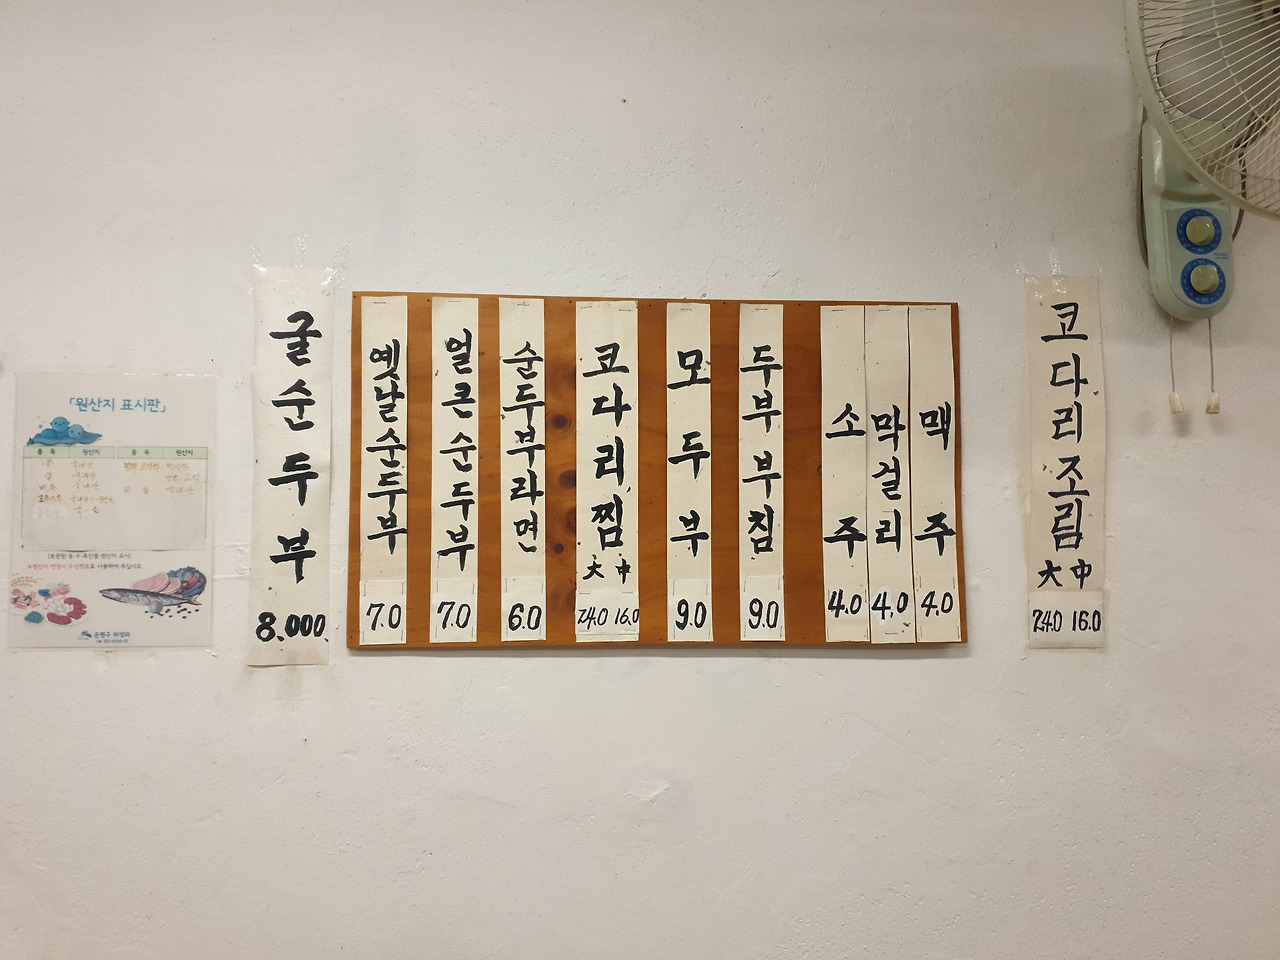 「원산지 표시판」
품 목 원산지 품 목 원산지
굴순두부
8.000
옛날순두부
7.0
얼큰순두부
7.0
순두부라면
6.0
코다리찜
大 中
24.0 16.0
모두부
9.0
두부부침
9.0
소주
4.0
막걸리
4.0
맥주
4.0
코다리조림
大 中
24.0 16.0
은평구 위생과